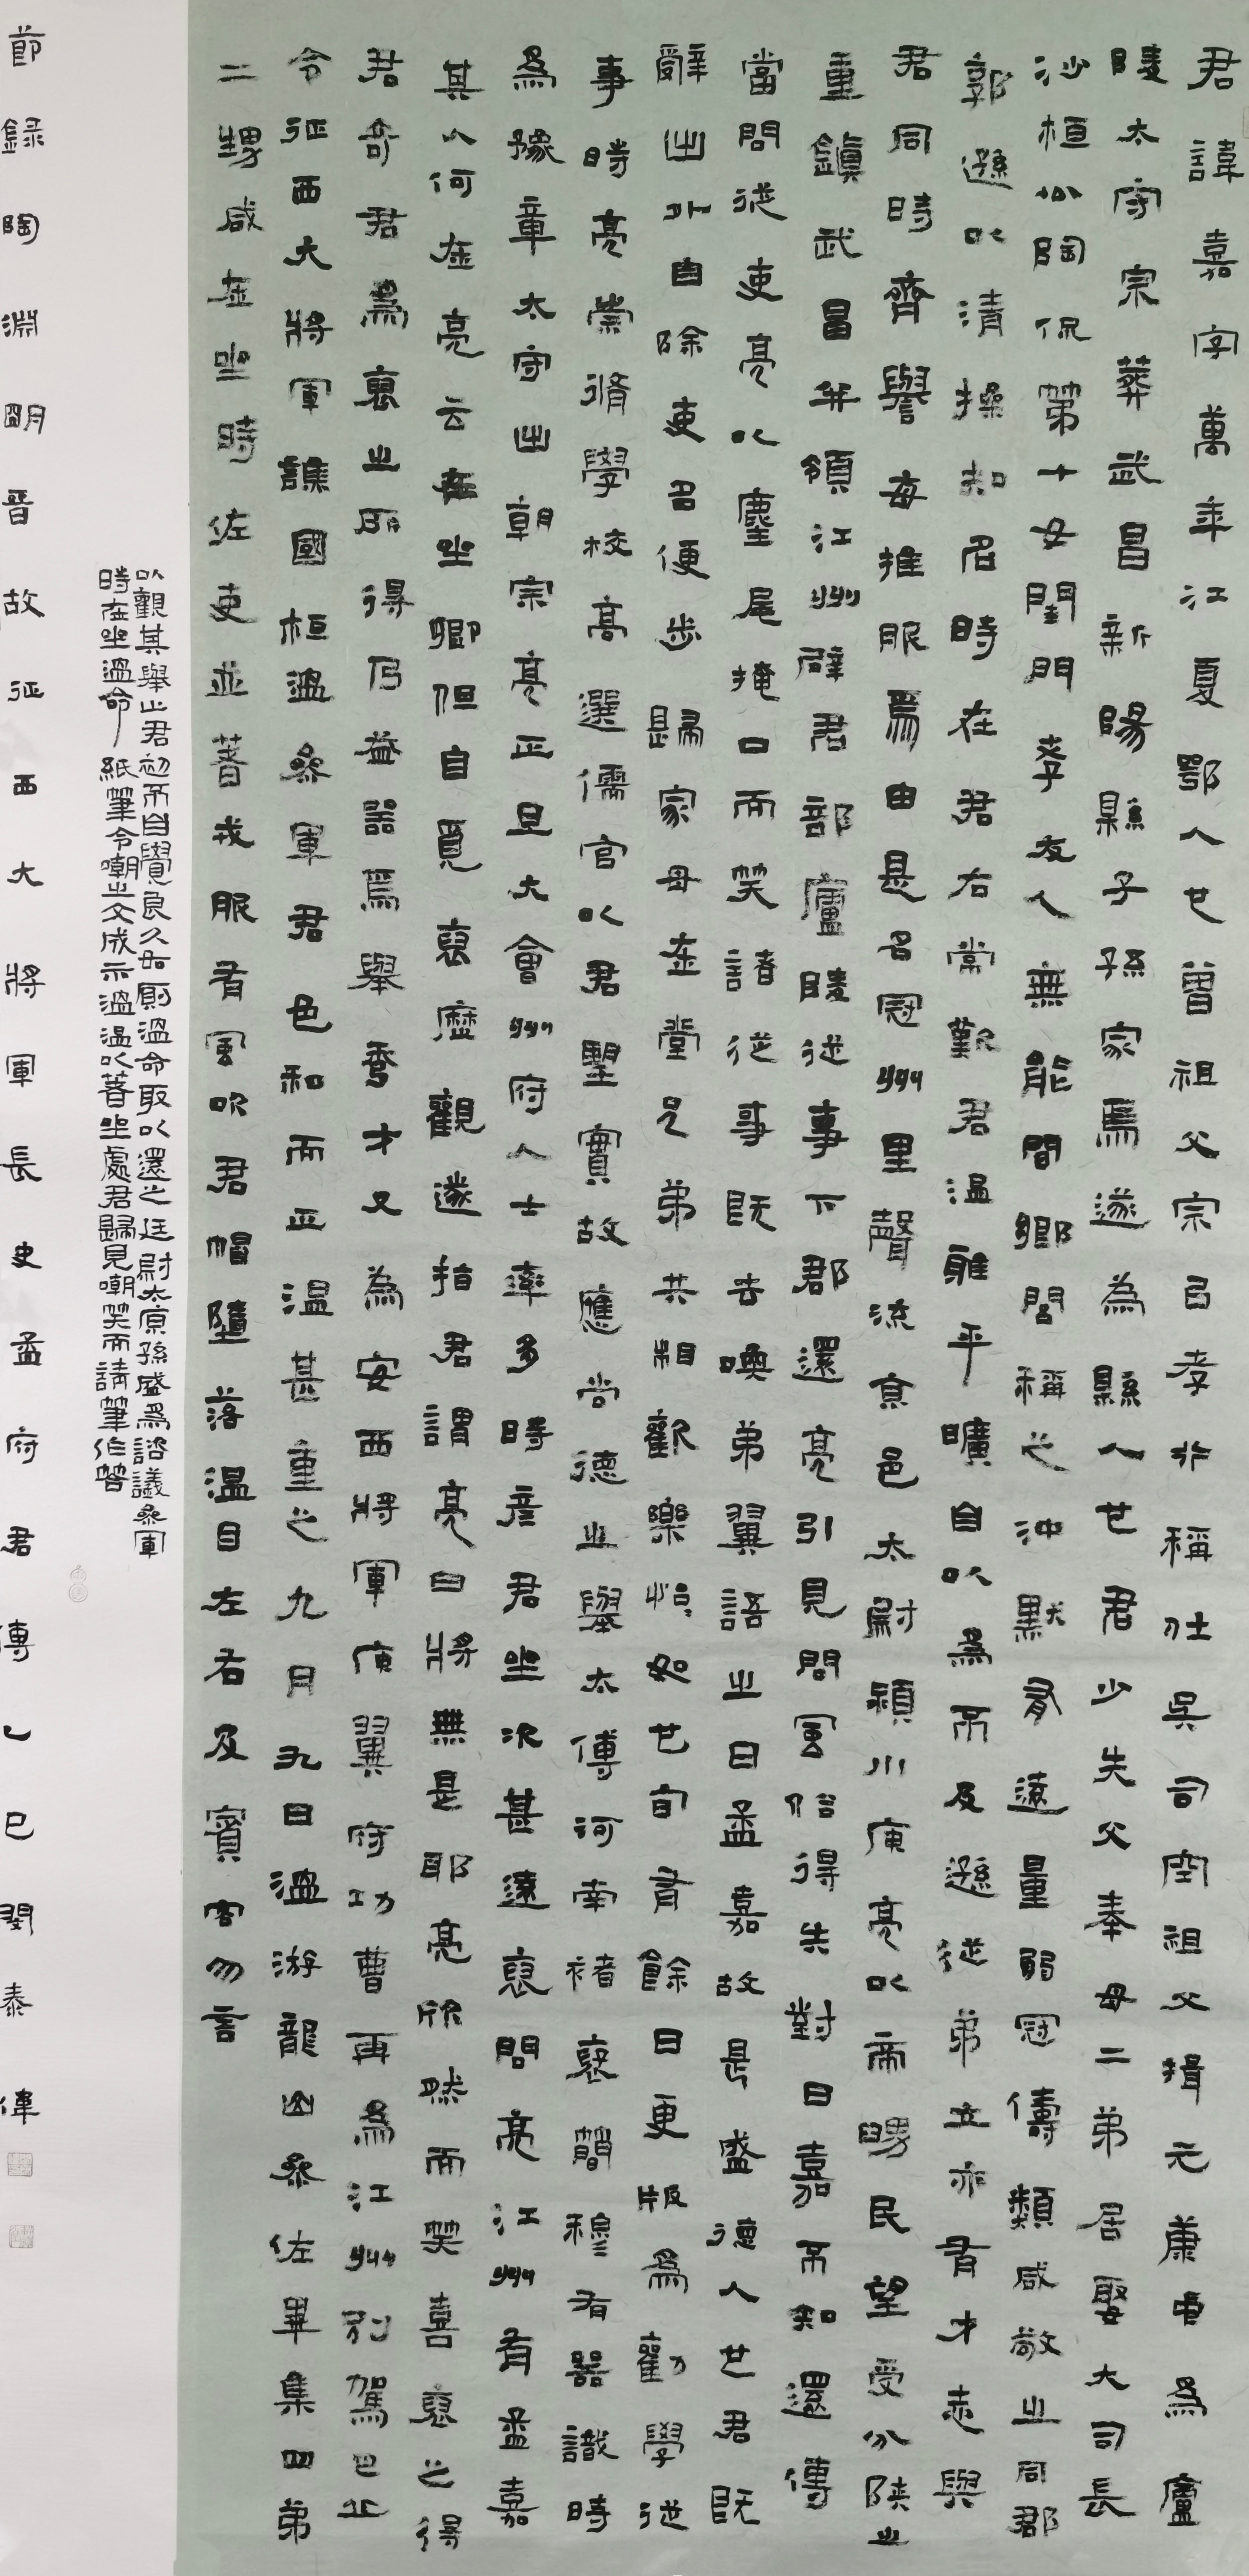 君諱嘉字萬年江夏鄂人也曾祖父宗以孝行稱仕吳司空祖父揖元康中為廬
陵太守宗葬武昌新陽縣子孫家焉遂為縣人也君少失父奉母二弟居娶大司長
沙桓公陶侃第十女閨門孝友人無能間鄉閭稱之沖默有遠量弱冠儔類咸敬之同郡
郭遜以清操知名時在君右常歎君溫雅平曠自以為不及遜從弟立亦有才志與
君同時齊譽每推服焉由是名冠州里聲流京邑太尉潁川庾亮以帝舅民望受分陝之
重鎮武昌并領江州辟君部廬陵從事下郡還亮引見問風俗得失對曰嘉不知還傳
當問從吏亮以麈尾掩口而笑諸從事既去喚弟翼語之曰孟嘉故是盛德人也君既
辭出外自除吏名便步歸家母在堂兄弟共相歡樂怡怡如也旬有餘日更版為勸學從
事時亮崇脩學校高選儒官以君望實故應尚德之舉太傅河南褚裒簡穆有器識時
為豫章太守出朝宗亮正旦大會州府人士率多時彥君坐次甚遠裒問亮江州有孟嘉
其人何在亮云在坐卿但自覓裒歷觀遂指君謂亮曰將無是耶亮欣然而笑喜裒之得
君奇君為裒之所得乃益器焉舉秀才又為安西將軍庾翼府功曹再為江州別駕巴丘
令征西大將軍譙國桓溫參軍君色和而正溫甚重之九月九日溫游龍山參佐畢集四弟
二甥咸在坐時佐吏並著戎服有風吹君帽墮落溫目左右及賓客勿言
以觀其舉止君初不自覺良久如廁溫命取以還之廷尉太原孫盛為諮議參軍
時在坐溫命紙筆令嘲之文成示溫溫以著坐處君歸見嘲笑而請筆作答
節錄陶淵明晉故征西大將軍長史孟府君傳乙巳閏泰律